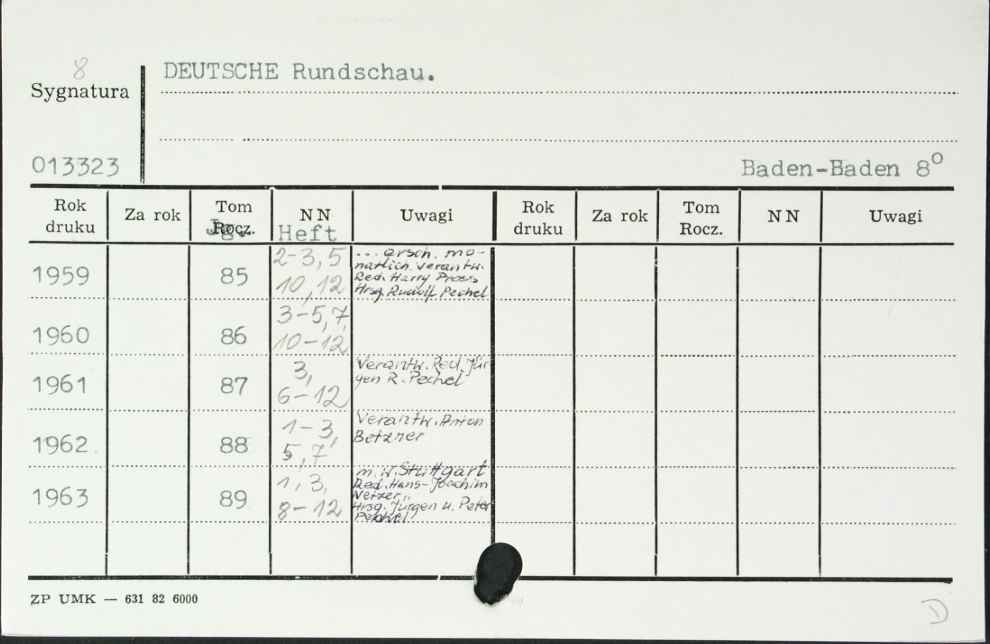 8
DEUTSCHE Rundschau.
Sygnatura
013323
Baden-Baden 8°
Rok druku Za rok Tom Rocz. NN Uwagi Rok druku Za rok Tom Rocz. NN Uwagi
Jg. Heft
1959 85 2-3, 5 10, 12
... ersch. mo-
natlich. Verantw.
Red. Harry Pross
Hrsg. Rudolf Pechel
1960 86 3-5, 7, 10-12
1961 87 3, 6-12
Verantw. Red. Jür-
gen R. Pechel
1962 88 1-3, 5, 7
Verantw. Anton
Betzner
1963 89 1, 3, 8-12
m. w. Stuttgart
Red. Hans-Joachim
Netzer,
Hrsg. Jürgen u. Peter
Pechel
ZP UMK — 631 82 6000
D